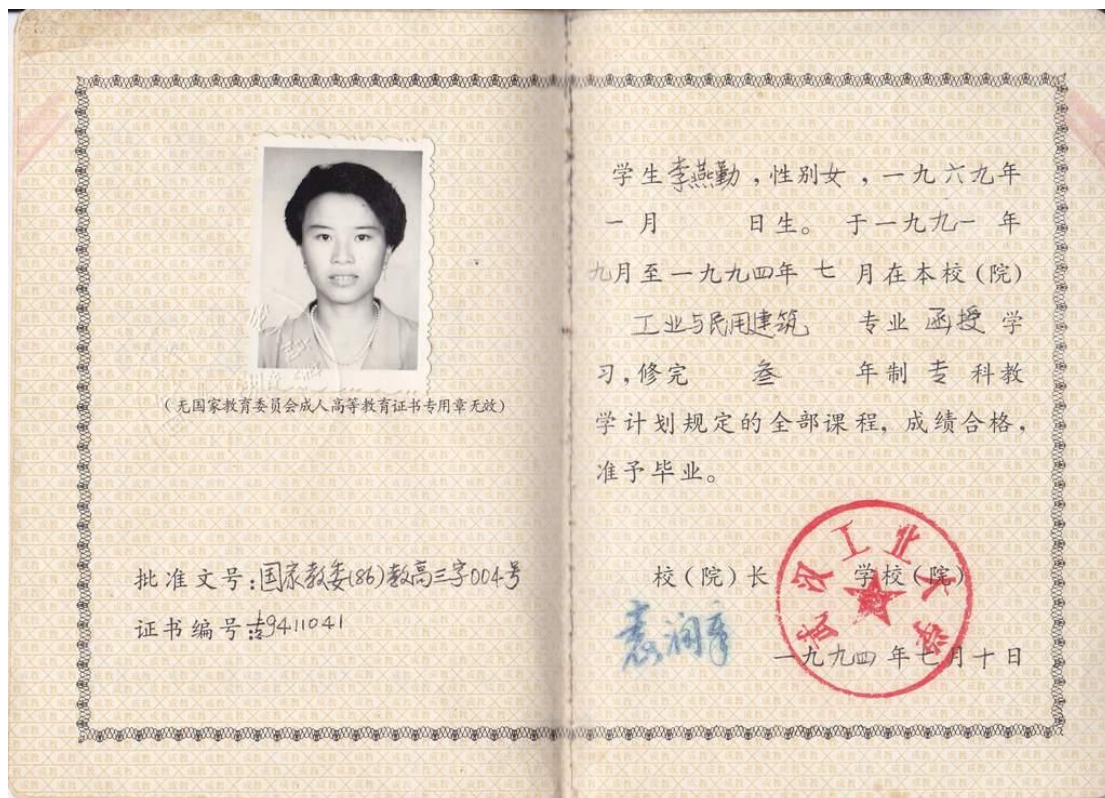 (无国家教育委员会成人高等教育证书专用章无效)
批准文号:国家教委(86)教高三字004号
证书编号:9411041
学生李燕勤,性别女,一九六九年
一月 日生。于一九九一 年
九月至一九九四年 七 月在本校(院)
工业与民用建筑 专业 函授 学
习,修完 叁 年制 专 科教
学计划规定的全部课程,成绩合格,
准予毕业。
校(院)长 学校(院)
袁润章
武汉工业大学
一九九四年七月十日